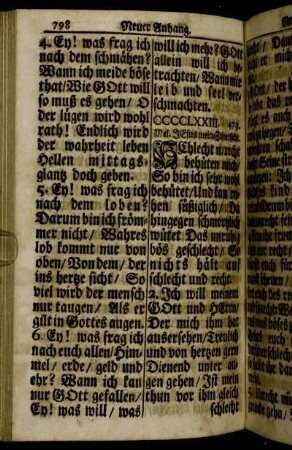 798 Neuer Anhang.
4. Ey! was frag ich
nach dem schmähen?
Wann ich meide böse
that/Wie GOtt will
so muß es gehen/ O
der lügen wird wohl
rath! Endlich wird
der wahrheit leben
Hellen mittags-
glantz doch geben.
5. Ey! was frag ich
nach dem loben?
Darum bin ich from-
mer nicht/ Wahres
lob kommt nur von
oben/ Von dem/ der
ins hertze sicht/ So
viel wird der mensch
nur taugen/ Als er
gilt in Gottes augen.
6. Ey! was frag ich
nach euch allen/ Him-
mel/ erde/ geld und
ehr? Wann ich kan
nur GOtt gefallen/
Ey! was will/ was
will ich mehr? GOtt
allein will ich be-
trachten/ Wann mir
leib und seel ver-
schmachten.
CCCCLXXIII. 473.
Mel. JEsus meine Zuversicht.
SChlecht u. recht
behüten mich/
So bin ich sehr wohl
behütet/
hingegen schmertzlich
wütet
bös geschlecht/ So
nichts hält auf
schlecht und recht.
2. Ich will meinem
GOtt und HErrn/
Der mich ihm hat
auserseheh/ Treulich
und von hertzen gern
Dienend unter au-
gen gehen/ Ist mein
thun vor ihm gleich
schlecht